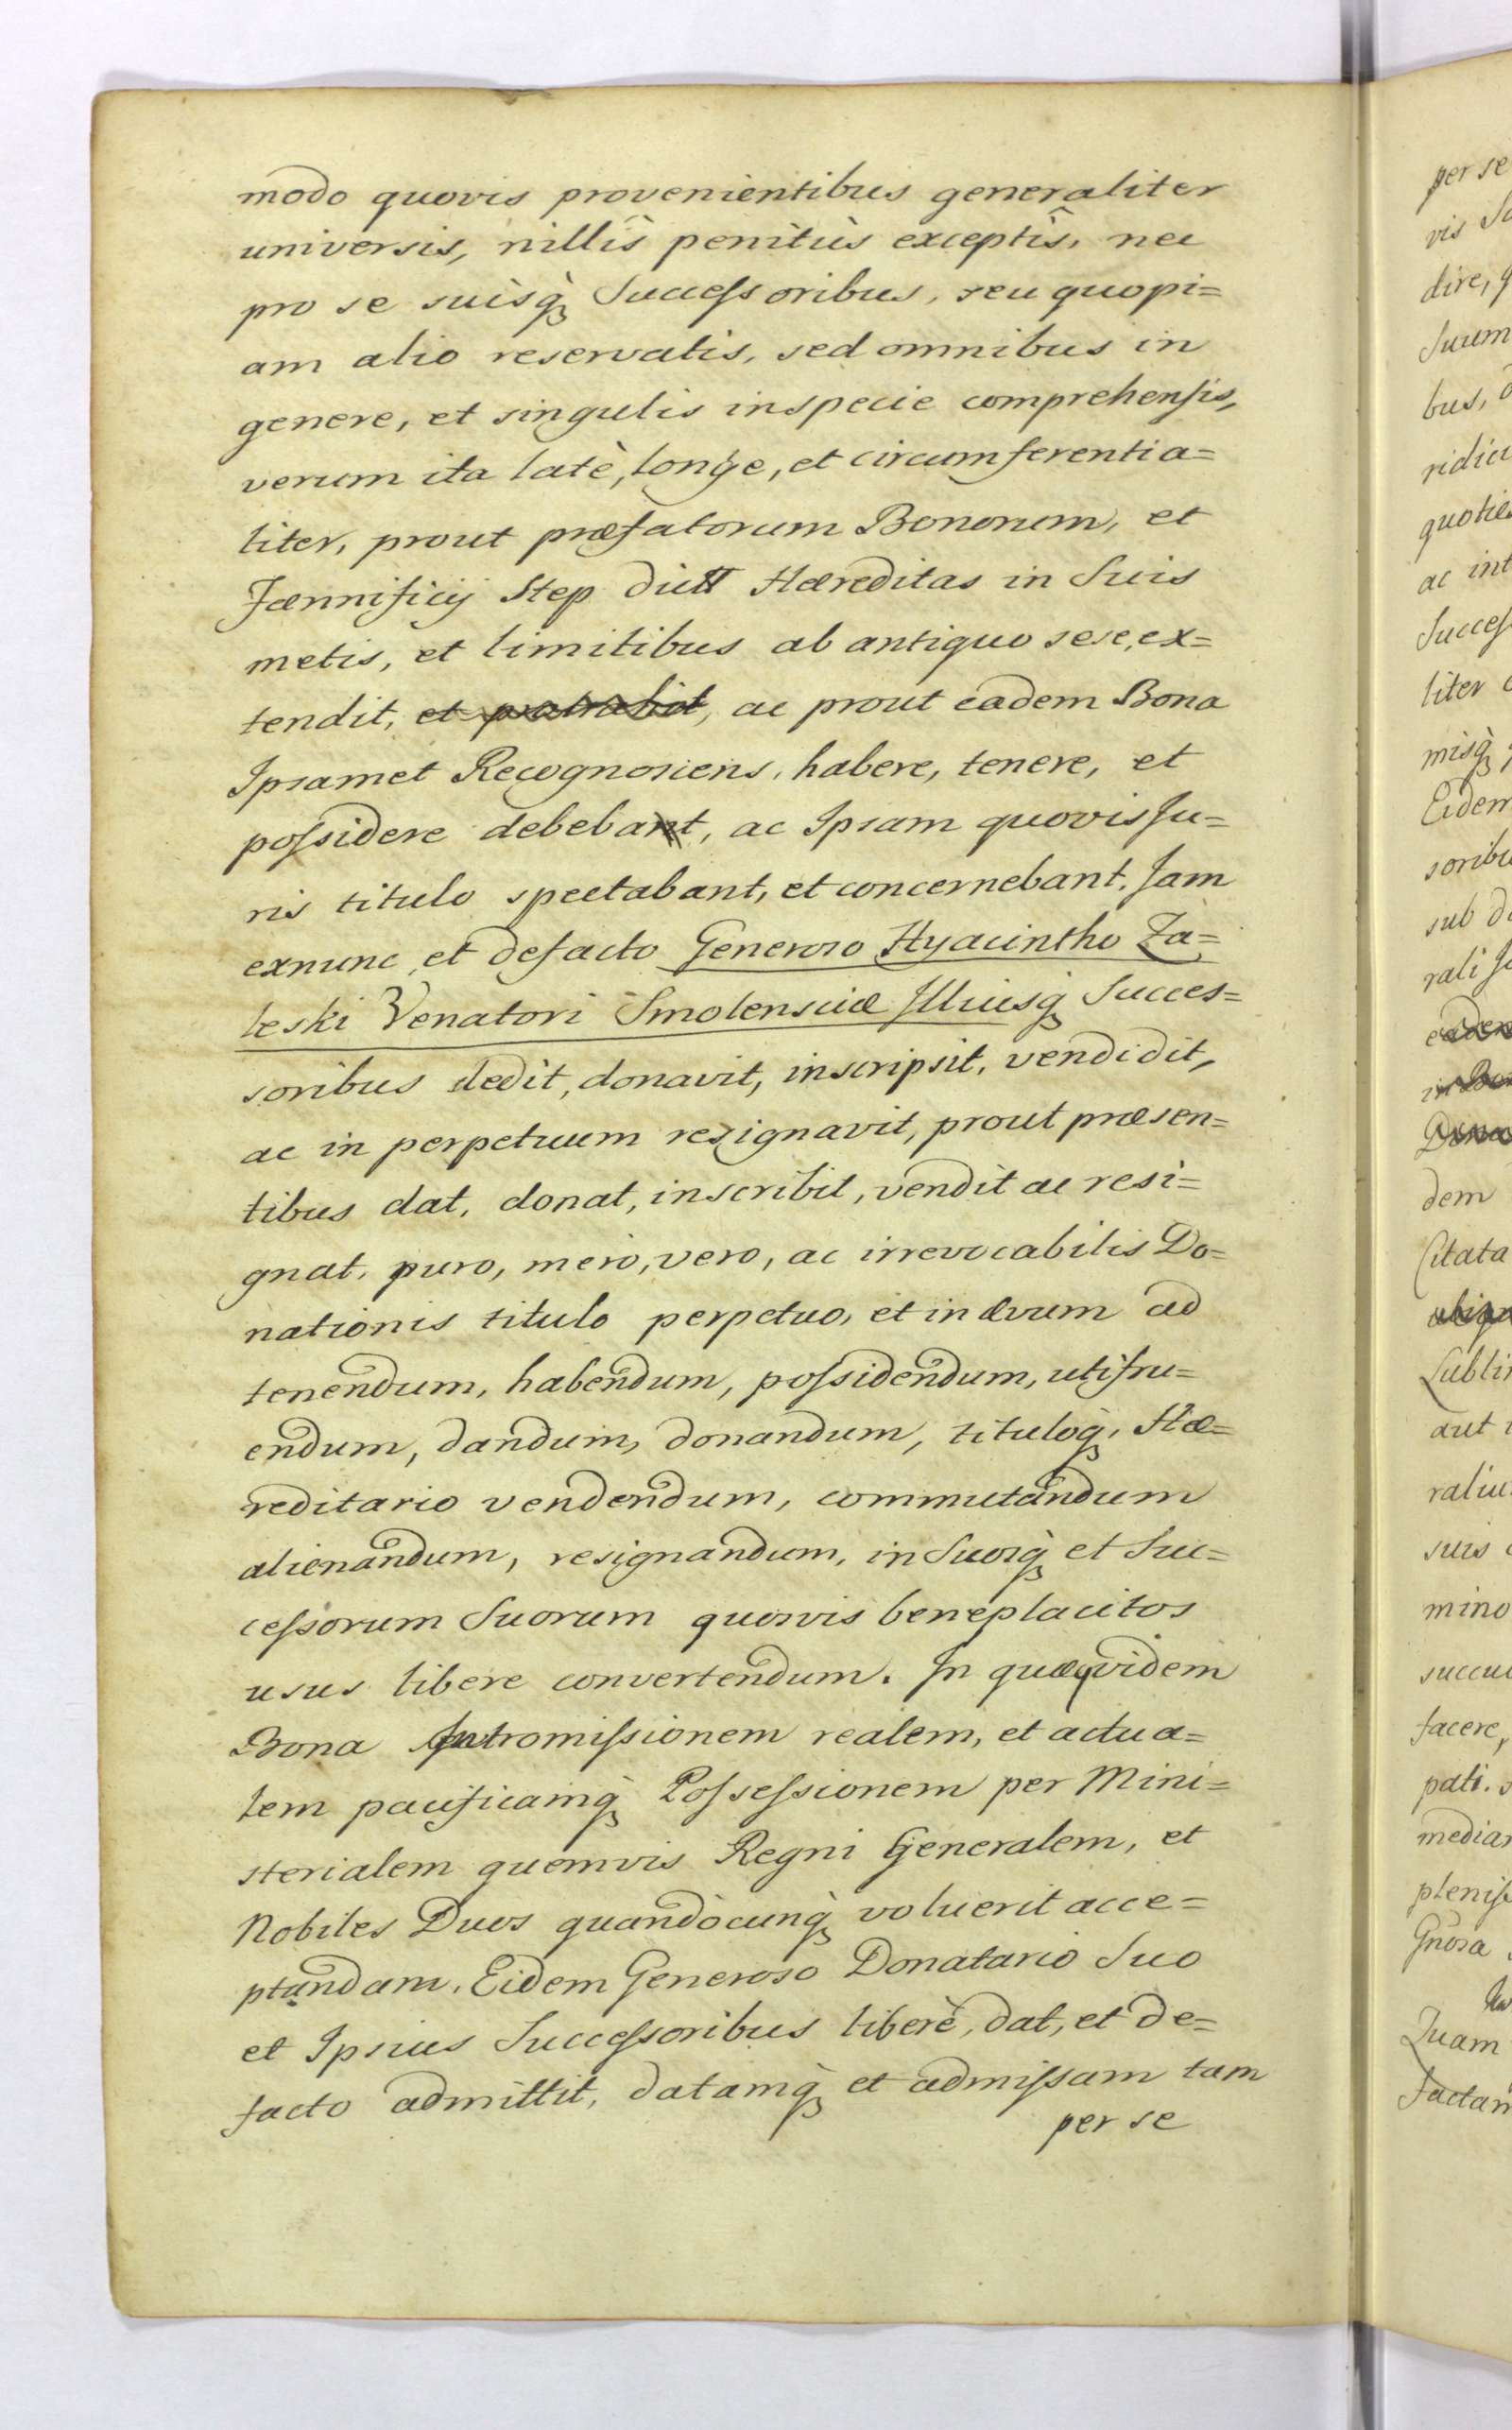 modo quovis provenientibus generaliter
universis, nillîs penitùs exceptîs, nec
pro se suisq̀, Successoribus, seu quopi=
am alio reservatis, sed omnibus in
genere, et singulis inspecie comprehensis,
verum ita latè, longe, et circumferentia=
liter, prout præfatorum Bonorum, et
Fænnificij Step dictt Hæreditas in Suis
metis, et limitibus ab antiquo sese, ex=
tendit, et, ac prout eadem Bona
Ipsamet Recognosciens, habere, tenere, et
possidere debebant, ac Ipsam quovis Ju=
ris titulo spectabant, et concernebant, Jam
exnunc, et defacto Generoso Hyacintho Za=
leski Venatori Smolensciæ Illiusq̨ Succes=
soribus dedit, donavit, inscripsit, vendidit,
ac in perpetuum resignavit, prout præsen=
tibus dat, donat, inscribit, vendit ac resi=
gnat, puro, mero, vero, ac irrevocabilis Do=
nationis titulo perpetuo, et in ævum ad
tenendum, habendum, possidendum, utifru=
endum, dandum, donandum, tituloq̀, Hæ=
reditario vendendum, commutandum
alienandum, resignandum, in Suosq̀, et Suc=
cessorum Suorum quosvis beneplacitos
usus libere convertendum. In quæquidem
Bona Intromissionem realem, et actua=
lem pacificamq̀, Possessionem per Mini=
sterialem quemvis Regni Generalem, et
Nobiles Duos quandòcunq̀, voluerit acce=
ptandam, Eidem Generoso Donatario Suo
et Ipsius Successoribus liberè, dat, et de=
facto admittit, datamq̀, et admissam tam
per se
per se
vis
dire,
Suum
bus,
ridic
quoties
ac int
Success
liter
misq̀,
Eidem
soribu
sub
rali
dem
Citata
Lubli
aut
raliu
suis
mino
succu
facere,
pati.
median
pleniss
Gnosa
Quam
factam